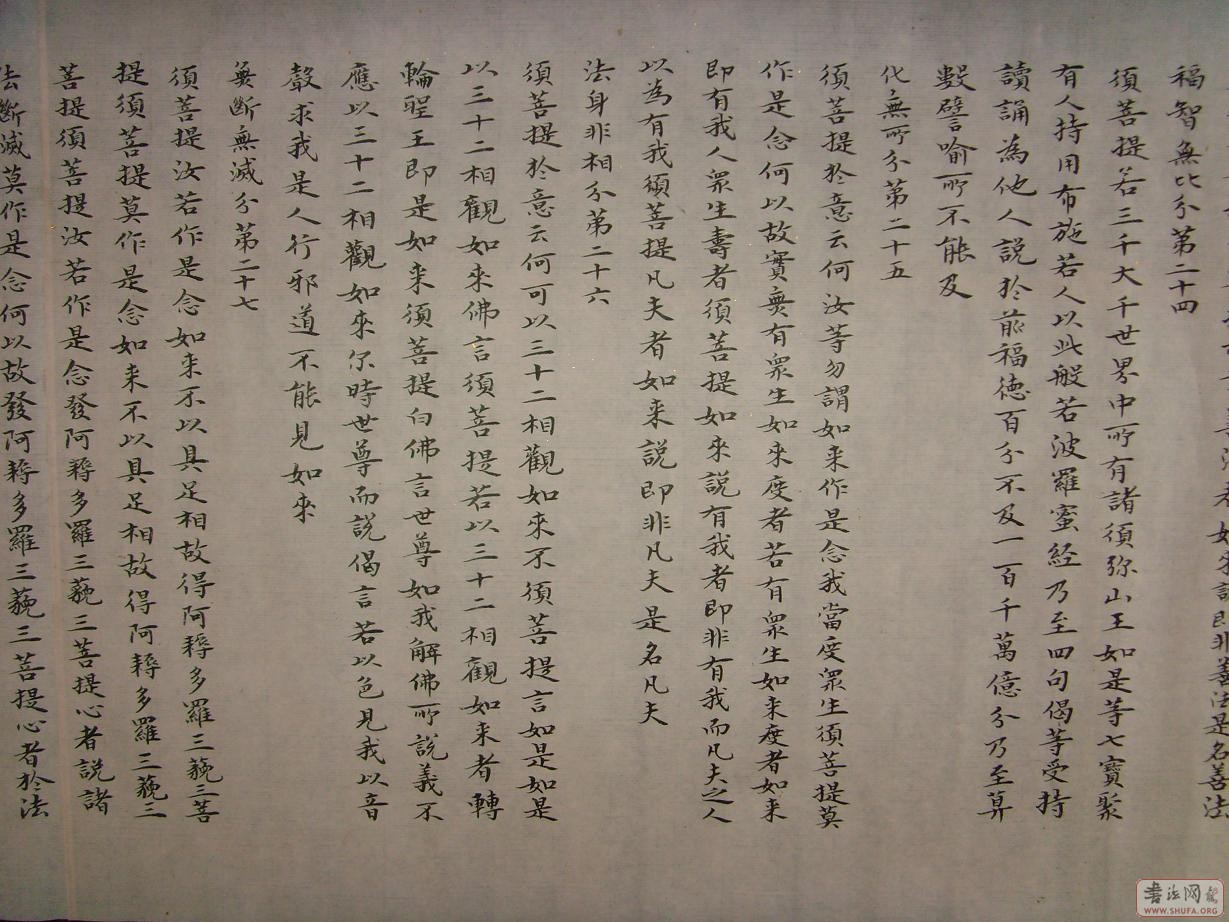 善法者如来説即非善法是名善法
福智無比分第二十四
須菩提若三千大千世界中所有諸須弥山王如是等七寶聚
有人持用布施若人以此般若波羅蜜經乃至四句偈等受持
讀誦為他人説於前福德百分不及一百千萬億分乃至算
數譬喻所不能及
化無所分第二十五
須菩提於意云何汝等勿謂如来作是念我當度眾生須菩提莫
作是念何以故實無有眾生如来度者若有眾生如来度者如来
即有我人眾生壽者須菩提如来説有我者即非有我而凡夫之人
以為有我須菩提凡夫者如来説即非凡夫是名凡夫
法身非相分第二十六
須菩提於意云何可以三十二相觀如来不須菩提言如是如是
以三十二相觀如来佛言須菩提若以三十二相觀如来者轉
輪聖王即是如来須菩提白佛言世尊如我解佛所説義不
應以三十二相觀如来尔時世尊而説偈言若以色見我以音
聲求我是人行邪道不能見如来
無断無滅分第二十七
須菩提汝若作是念如来不以具足相故得阿耨多羅三藐三菩
提須菩提莫作是念如来不以具足相故得阿耨多羅三藐三
菩提須菩提汝若作是念發阿耨多羅三藐三菩提心者説諸
法断滅莫作是念何以故發阿耨多羅三藐三菩提心者於法
書法网
WWW.SHUFA.ORG